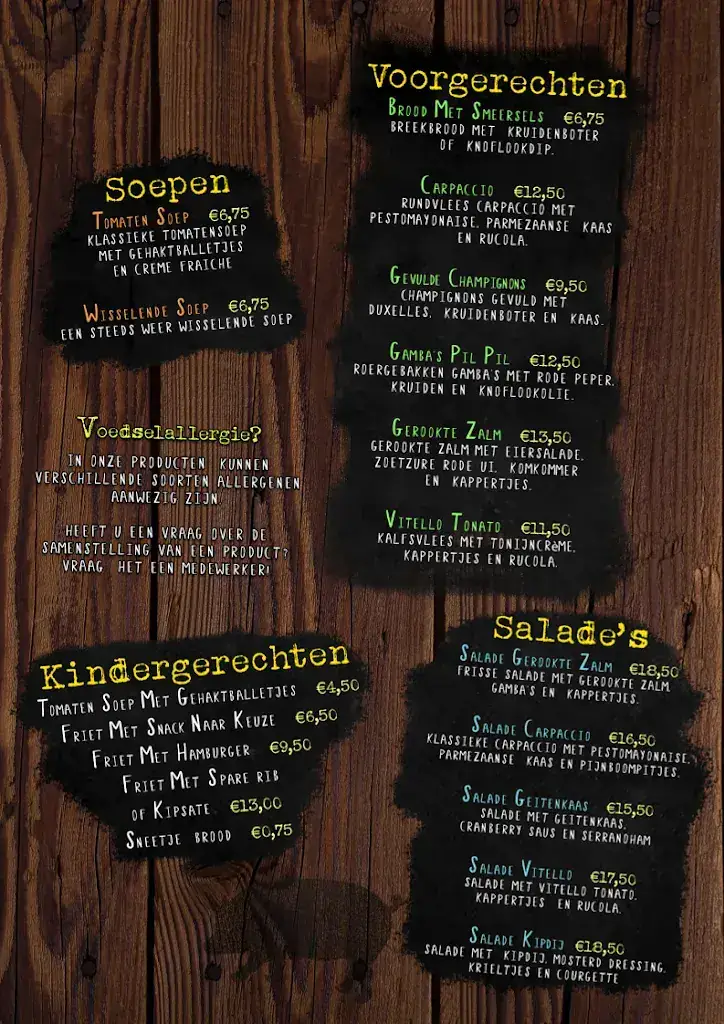 Soepen
Tomaten Soep €6,75
Klassieke tomatensoep
met gehaktballetjes
en creme fraiche
Wisselende Soep €6,75
Een steeds weer wisselende soep
Voedselallergie?
In onze producten kunnen
verschillende soorten allergenen
aanwezig zijn
Heeft u een vraag over de
samenstelling van een product?
Vraag het een medewerker!
Kindergerechten
Tomaten Soep Met Gehaktballetjes €4,50
Friet Met Snack Naar Keuze €6,50
Friet Met Hamburger €9,50
Friet Met Spare rib
of Kipsate €13,00
Sneetje brood €0,75
Voorgerechten
Brood Met Smeersels €6,75
Breekbrood met kruidenboter
of knoflookdip.
Carpaccio €12,50
Rundvlees carpaccio met
pestomayonaise, parmezaanse kaas
en rucola.
Gevulde Champignons €9,50
Champignons gevuld met
duxelles, kruidenboter en kaas.
Gamba's Pil Pil €12,50
Roergebakken gamba's met rode peper,
kruiden en knoflookolie.
Gerookte Zalm €13,50
Gerookte zalm met eiersalade,
zoetzure rode ui, komkommer
en kappertjes.
Vitello Tonato €11,50
Kalfsvlees met tonijncrème,
kappertjes en rucola.
Salade's
Salade Gerookte Zalm €18,50
Frisse salade met gerookte zalm
gamba's en kappertjes.
Salade Carpaccio €16,50
Klassieke carpaccio met pestomayonaise,
parmezaanse kaas en pijnboompitjes.
Salade Geitenkaas €15,50
Salade met geitenkaas,
cranberry saus en serranoham
Salade Vitello €17,50
Salade met vitello tonato,
kappertjes en rucola.
Salade Kipdij €18,50
Salade met kipdij, mosterd dressing,
krieltjes en courgette